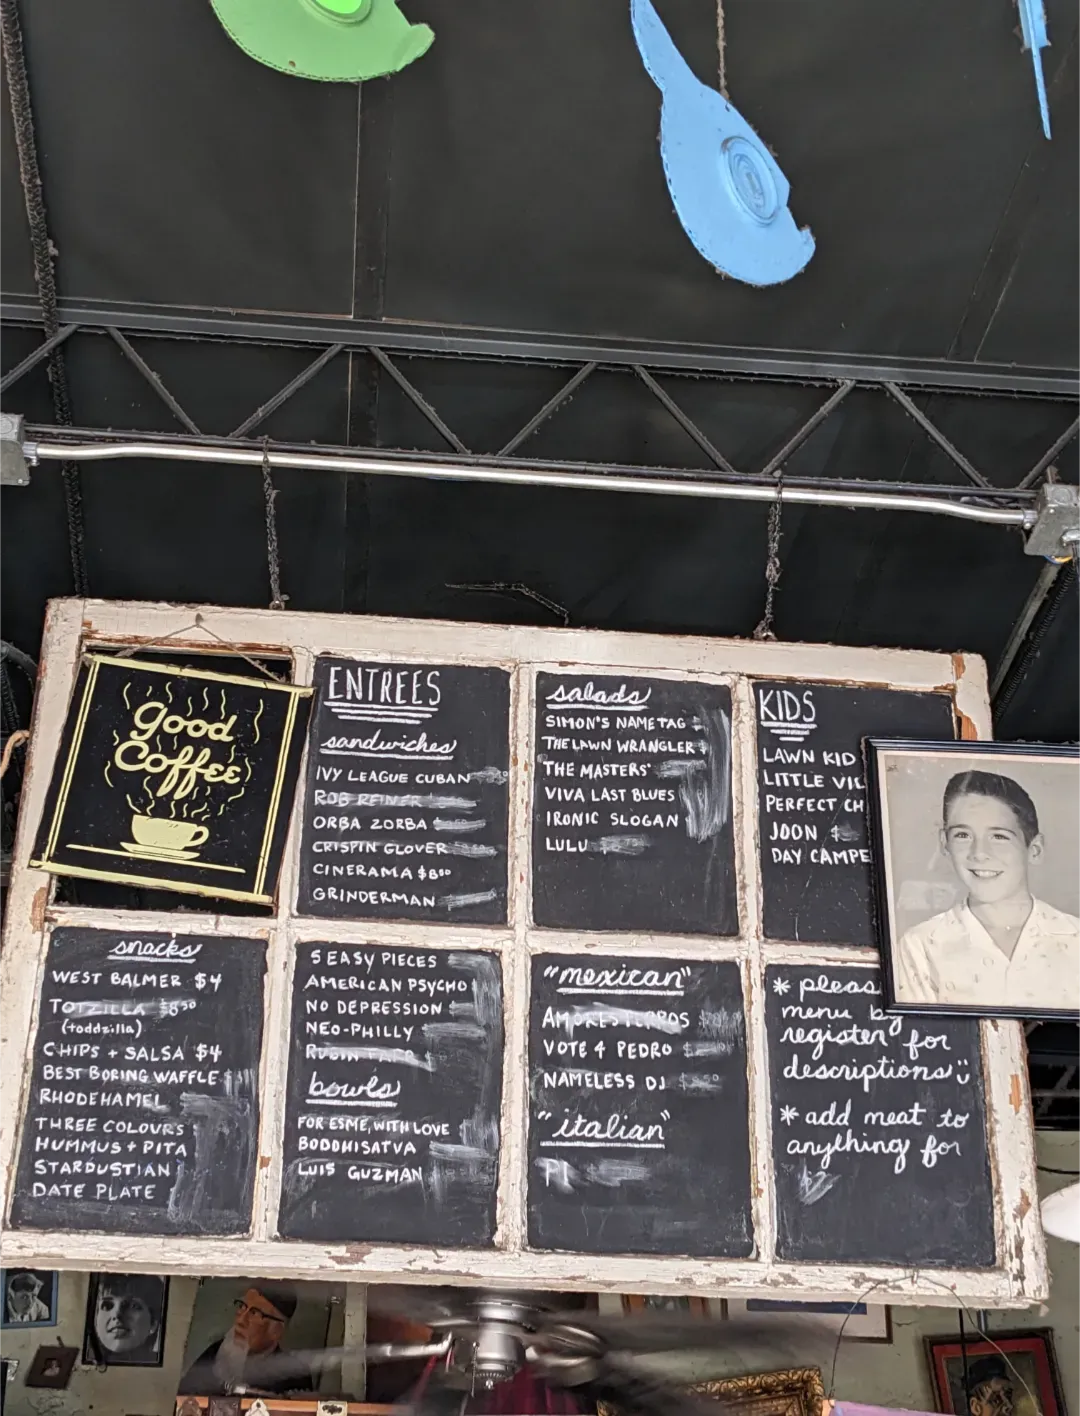 good
Coffee
ENTREES
sandwiches
IVY LEAGUE CUBAN
ROB REINER
ORBA ZORBA
CRISPIN GLOVER
CINERAMA $8⁰⁰
GRINDERMAN
salads
SIMON'S NAME TAG
THE LAWN WRANGLER
THE MASTERS'
VIVA LAST BLUES
IRONIC SLOGAN
LULU
KIDS
LAWN KID
LITTLE VIL
PERFECT CH
JOON $
DAY CAMPE
snacks
WEST BALMER $4
TOTZILLA $8⁵⁰
(toddzilla)
CHIPS + SALSA $4
BEST BORING WAFFLE
RHODEHAMEL
THREE COLOURS
HUMMUS + PITA
STARDUSTIAN
DATE PLATE
5 EASY PIECES
AMERICAN PSYCHO
NO DEPRESSION
NEO-PHILLY
bowls
FOR ESME, WITH LOVE
BODDHISATVA
LUIS GUZMAN
"mexican"
AMORES PERROS
VOTE 4 PEDRO
NAMELESS DJ
"italian"
PI
* pleas
menu by
register for
descriptions
* add meat to
anything for